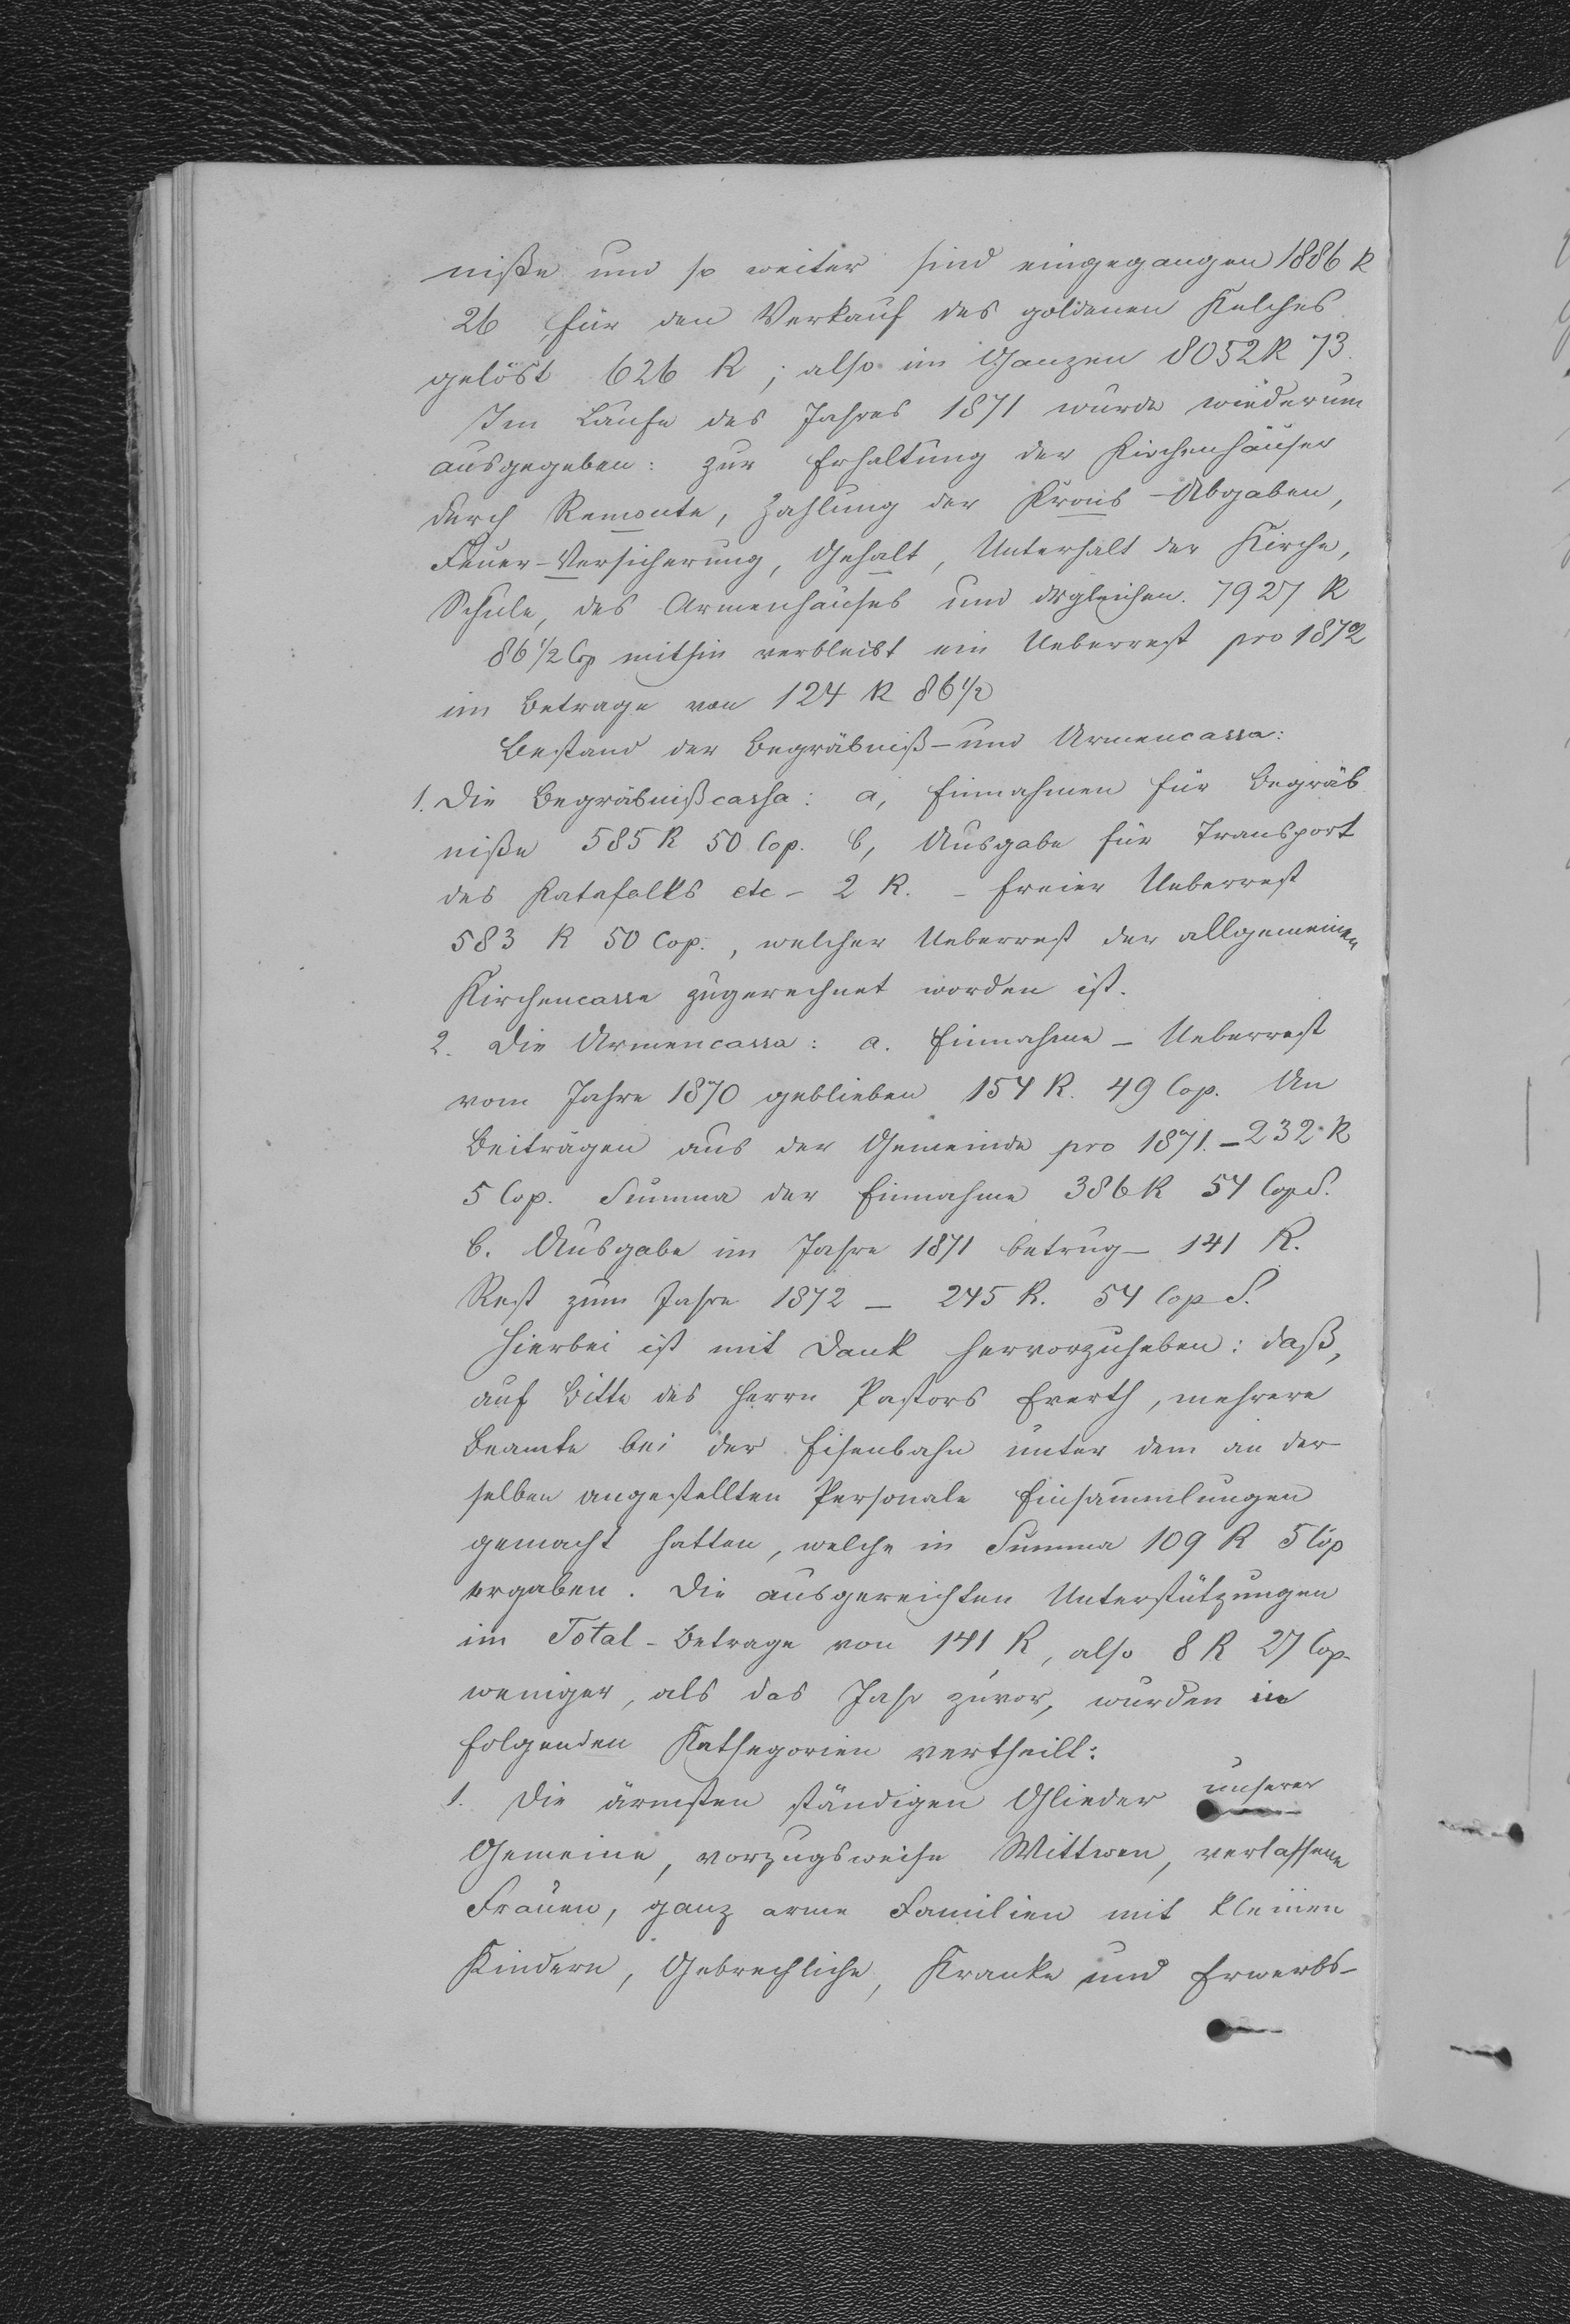 niße und so weiter sind eingegangen 1886 R
26, für den Verkauf des goldenen Kelches
gelöst 626 R; also im Ganzen 8052 R 73.
Im Laufe des Jahres 1871 wurde wiederum
ausgegeben: zur Erhaltung der Kirchenhäuser
durch Remonte, Zahlung der Krons-Abgaben,
Feuer-Versicherung, Gehalt, Unterhalt der Kirche,
Schule, des Armenhauses und dsgleichen. 7927 R
86 1/2 Cop mithin verbleibt ein Ueberrest pro 1872
im Betrage von 124 R 86 1/2
Bestand der Begräbniß- und Armencassa:
1. Die Begräbnißcassa: a, Einnahmen für Begräb
niße 585 R 50 Cop. b, Ausgabe für Transport
des Katafalks etc - 2 R. - Freier Ueberrest
583 R 50 Cop., welcher Ueberrest der allgemeinen
Kirchencasse zugerechnet worden ist.
2. Die Armencassa: a. Einnahme - Ueberrest
vom Jahre 1870 geblieben 154 R. 49 Cop. An
Beiträgen aus der Gemeinde pro 1871. - 232 R
5 Cop. Summa der Einnahme 386 R 54 Cop S.
b. Ausgabe im Jahre 1871 betrug - 141 R.
Rest zum Jahre 1872 - 245 R. 54 Cop S.
Hierbei ist mit Dank hervorzuheben: daß,
auf Bitte des Herrn Pastors Everth, mehrere
Beamte bei der Eisenbahn unter dem an der-
selben angestellten Personale Einsammlungen
gemacht hatten, welche in Summa 109 R 5 Cop
ergaben. Die ausgereichten Unterstützungen
im Total-Betrage von 141 R, also 8 R 27 Cop.
weniger, als das Jahr zuvor, wurden in
folgenden Kathegorien vertheilt:
1. Die ärmsten ständigen Glieder unserer
Gemeine, vorzugsweise Wittwen, verlassene
Frauen, ganz arme Familien mit kleinen
Kindern, Gebrechliche, Kranke und Erwerbs-